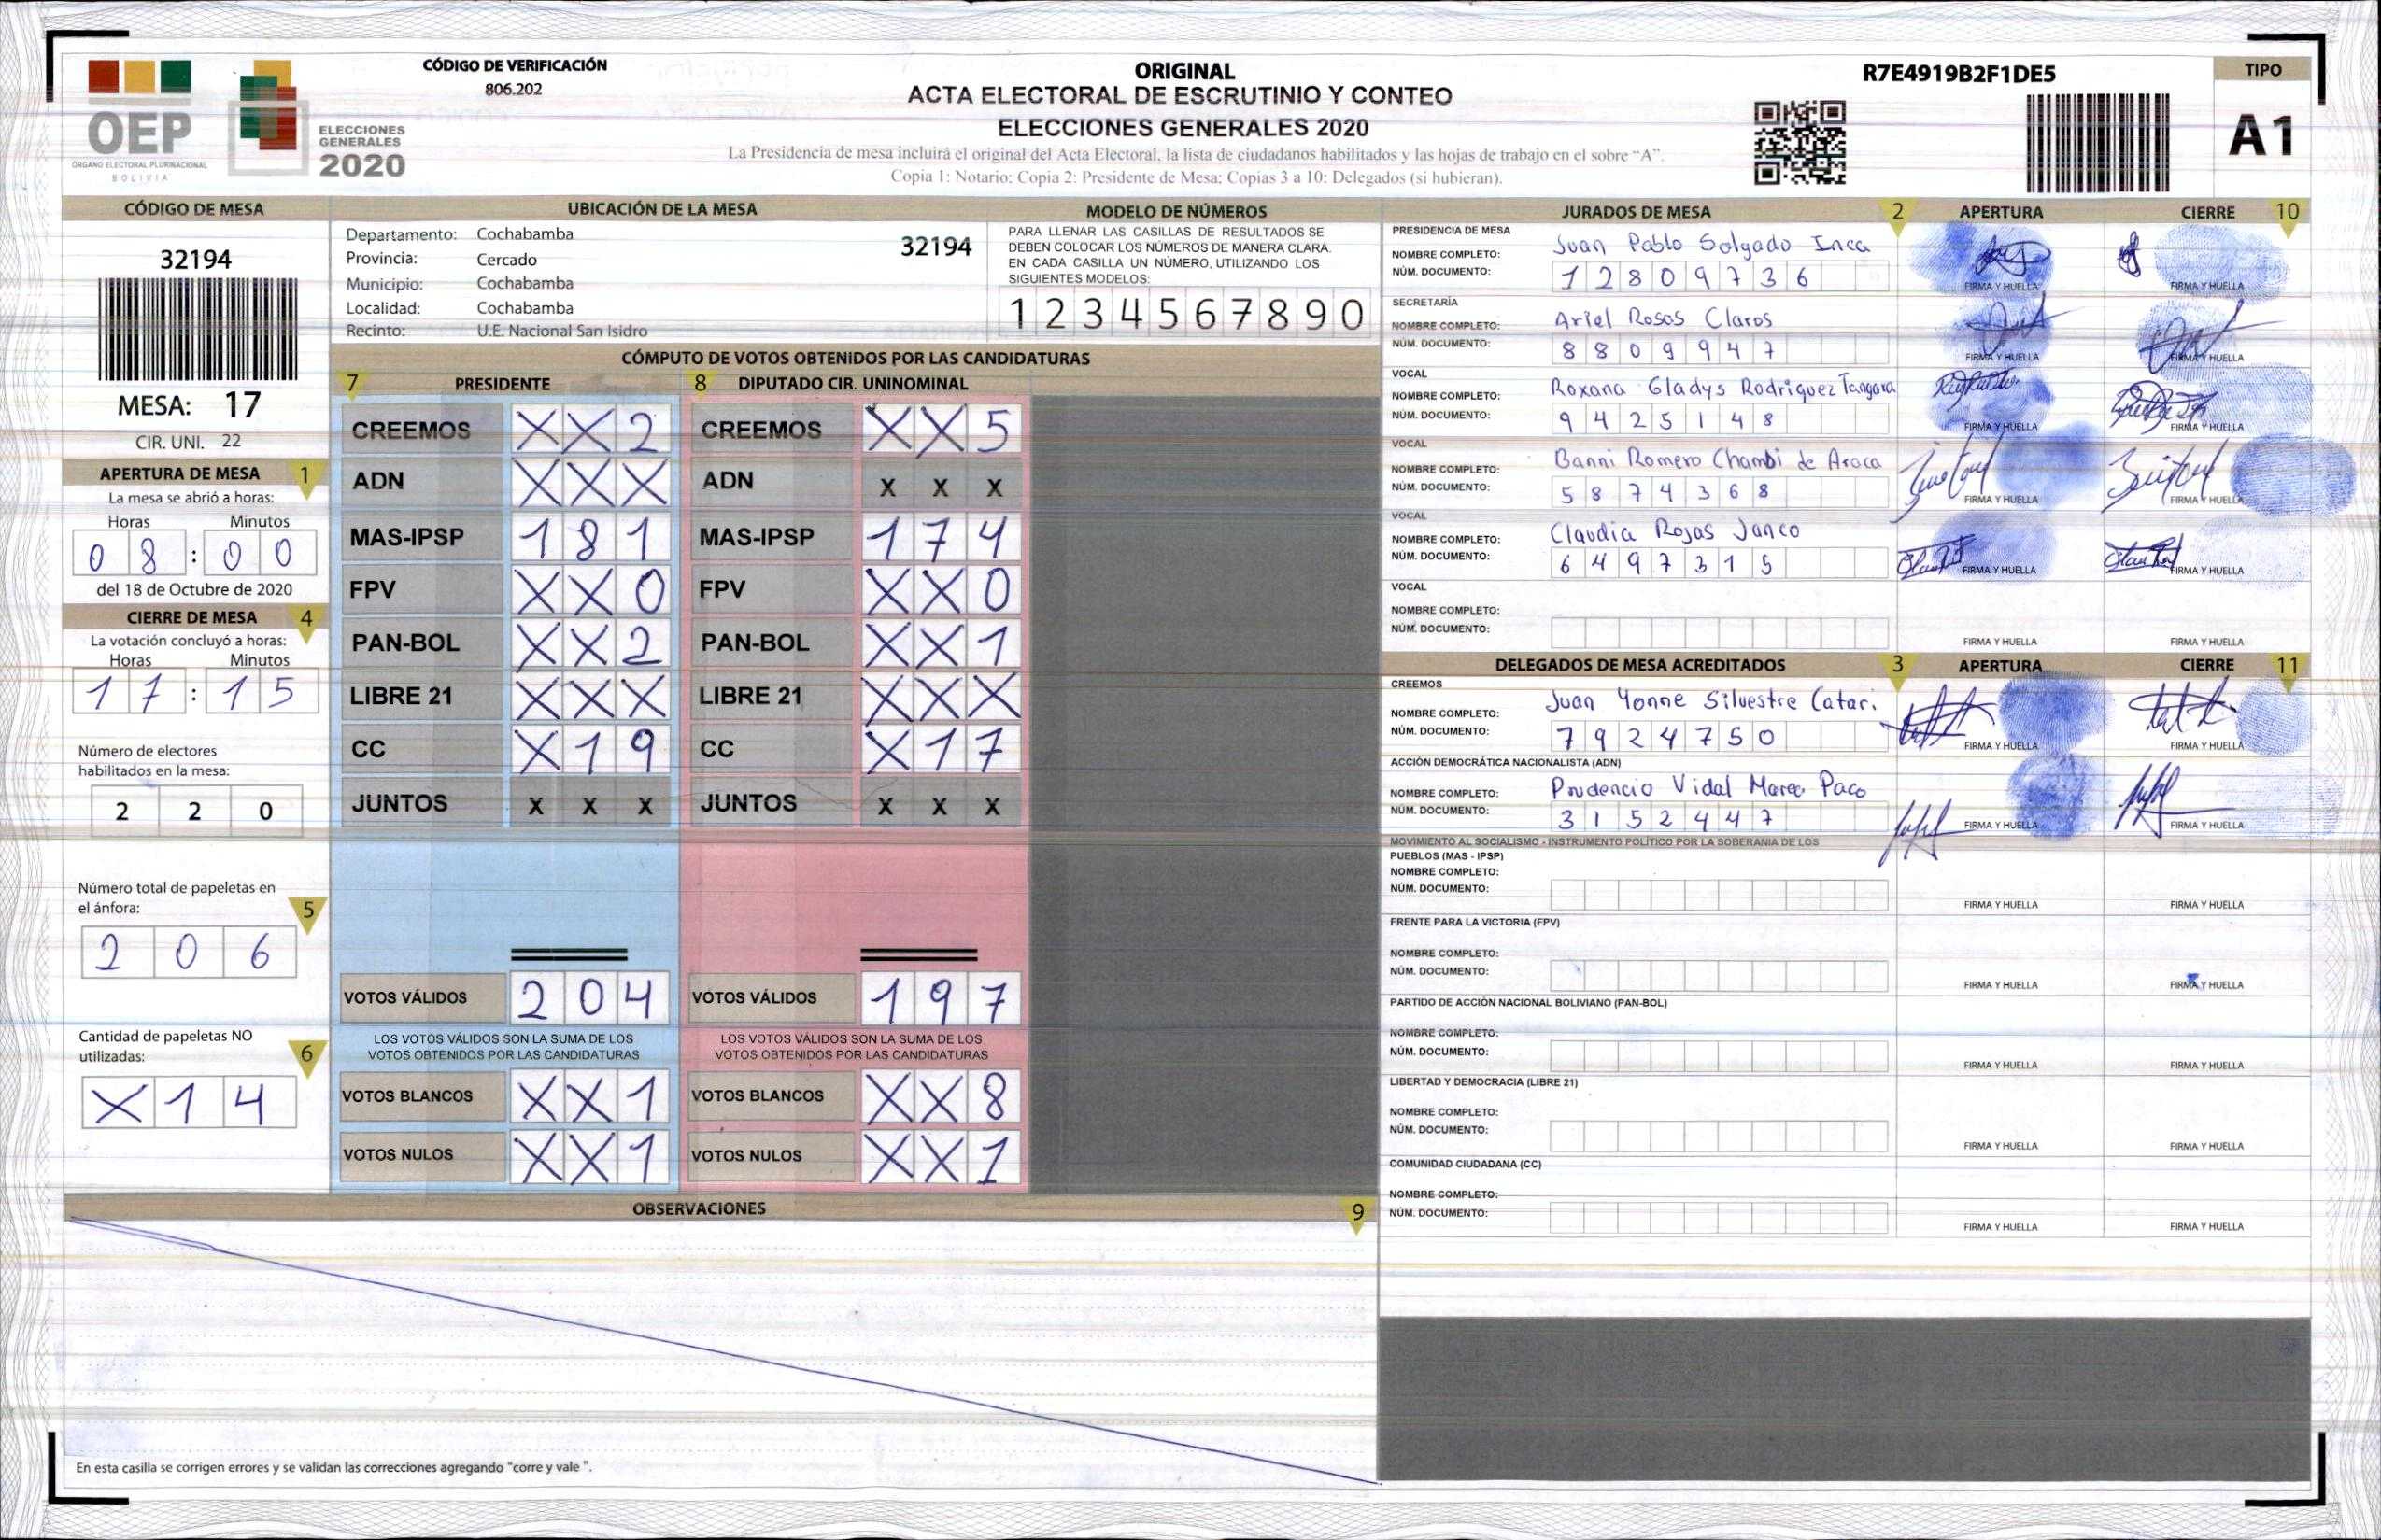 OEP
ÓRGANO ELECTORAL PLURINACIONAL
BOLIVIA
ELECCIONES
GENERALES
2020
CÓDIGO DE VERIFICACIÓN
806.202
ORIGINAL
ACTA ELECTORAL DE ESCRUTINIO Y CONTEO
ELECCIONES GENERALES 2020
La Presidencia de mesa incluirá el original del Acta Electoral, la lista de ciudadanos habilitados y las hojas de trabajo en el sobre “A”.
Copia 1: Notario; Copia 2: Presidente de Mesa; Copias 3 a 10: Delegados (si hubieran).
R7E4919B2F1DE5
TIPO
A1
CÓDIGO DE MESA
32194
MESA: 17
CIR. UNI. 22
APERTURA DE MESA 1
La mesa se abrió a horas:
Horas Minutos
0 8 : 0 0
del 18 de Octubre de 2020
CIERRE DE MESA 4
La votación concluyó a horas:
Horas Minutos
1 7 : 1 5
Número de electores
habilitados en la mesa:
2 2 0
Número total de papeletas en
el ánfora: 5
2 0 6
Cantidad de papeletas NO
utilizadas: 6
X 1 4
UBICACIÓN DE LA MESA
Departamento: Cochabamba 32194
Provincia: Cercado
Municipio: Cochabamba
Localidad: Cochabamba
Recinto: U.E. Nacional San Isidro
MODELO DE NÚMEROS
PARA LLENAR LAS CASILLAS DE RESULTADOS SE
DEBEN COLOCAR LOS NÚMEROS DE MANERA CLARA.
EN CADA CASILLA UN NÚMERO, UTILIZANDO LOS
SIGUIENTES MODELOS:
1 2 3 4 5 6 7 8 9 0
CÓMPUTO DE VOTOS OBTENIDOS POR LAS CANDIDATURAS
7 PRESIDENTE 8 DIPUTADO CIR. UNINOMINAL
CREEMOS X X 2 CREEMOS X X 5
ADN X X X ADN X X X
MAS-IPSP 1 8 1 MAS-IPSP 1 7 4
FPV X X 0 FPV X X 0
PAN-BOL X X 2 PAN-BOL X X 1
LIBRE 21 X X X LIBRE 21 X X X
CC X 1 9 CC X 1 7
JUNTOS X X X JUNTOS X X X
VOTOS VÁLIDOS 2 0 4 VOTOS VÁLIDOS 1 9 7
LOS VOTOS VÁLIDOS SON LA SUMA DE LOS LOS VOTOS VÁLIDOS SON LA SUMA DE LOS
VOTOS OBTENIDOS POR LAS CANDIDATURAS VOTOS OBTENIDOS POR LAS CANDIDATURAS
VOTOS BLANCOS X X 1 VOTOS BLANCOS X X 8
VOTOS NULOS X X 1 VOTOS NULOS X X 1
OBSERVACIONES 9
En esta casilla se corrigen errores y se validan las correcciones agregando "corre y vale ".
JURADOS DE MESA 2 APERTURA CIERRE 10
PRESIDENCIA DE MESA
NOMBRE COMPLETO: Juan Pablo Salgado Inca
NÚM. DOCUMENTO: 1 2 8 0 9 7 3 6
FIRMA Y HUELLA FIRMA Y HUELLA
SECRETARÍA
NOMBRE COMPLETO: Ariel Rosas Claros
NÚM. DOCUMENTO: 8 8 0 9 9 4 7
FIRMA Y HUELLA FIRMA Y HUELLA
VOCAL
NOMBRE COMPLETO: Roxana Gladys Rodriguez Tangara
NÚM. DOCUMENTO: 9 4 2 5 1 4 8
FIRMA Y HUELLA FIRMA Y HUELLA
VOCAL
NOMBRE COMPLETO: Banni Romero Chambi de Araca
NÚM. DOCUMENTO: 5 8 7 4 3 6 8
FIRMA Y HUELLA FIRMA Y HUELLA
VOCAL
NOMBRE COMPLETO: Claudia Rojas Janco
NÚM. DOCUMENTO: 6 4 9 7 3 1 5
FIRMA Y HUELLA FIRMA Y HUELLA
VOCAL
NOMBRE COMPLETO:
NÚM. DOCUMENTO:
FIRMA Y HUELLA FIRMA Y HUELLA
DELEGADOS DE MESA ACREDITADOS 3 APERTURA CIERRE 11
CREEMOS
NOMBRE COMPLETO: Juan Yonne Silvestre Catari
NÚM. DOCUMENTO: 7 9 2 4 7 5 0
FIRMA Y HUELLA FIRMA Y HUELLA
ACCIÓN DEMOCRÁTICA NACIONALISTA (ADN)
NOMBRE COMPLETO: Prudencio Vidal Paco
NÚM. DOCUMENTO: 3 1 5 2 4 4 7
FIRMA Y HUELLA FIRMA Y HUELLA
MOVIMIENTO AL SOCIALISMO - INSTRUMENTO POLÍTICO POR LA SOBERANIA DE LOS
PUEBLOS (MAS - IPSP)
NOMBRE COMPLETO:
NÚM. DOCUMENTO:
FIRMA Y HUELLA FIRMA Y HUELLA
FRENTE PARA LA VICTORIA (FPV)
NOMBRE COMPLETO:
NÚM. DOCUMENTO:
FIRMA Y HUELLA FIRMA Y HUELLA
PARTIDO DE ACCIÓN NACIONAL BOLIVIANO (PAN-BOL)
NOMBRE COMPLETO:
NÚM. DOCUMENTO:
FIRMA Y HUELLA FIRMA Y HUELLA
LIBERTAD Y DEMOCRACIA (LIBRE 21)
NOMBRE COMPLETO:
NÚM. DOCUMENTO:
FIRMA Y HUELLA FIRMA Y HUELLA
COMUNIDAD CIUDADANA (CC)
NOMBRE COMPLETO:
NÚM. DOCUMENTO:
FIRMA Y HUELLA FIRMA Y HUELLA